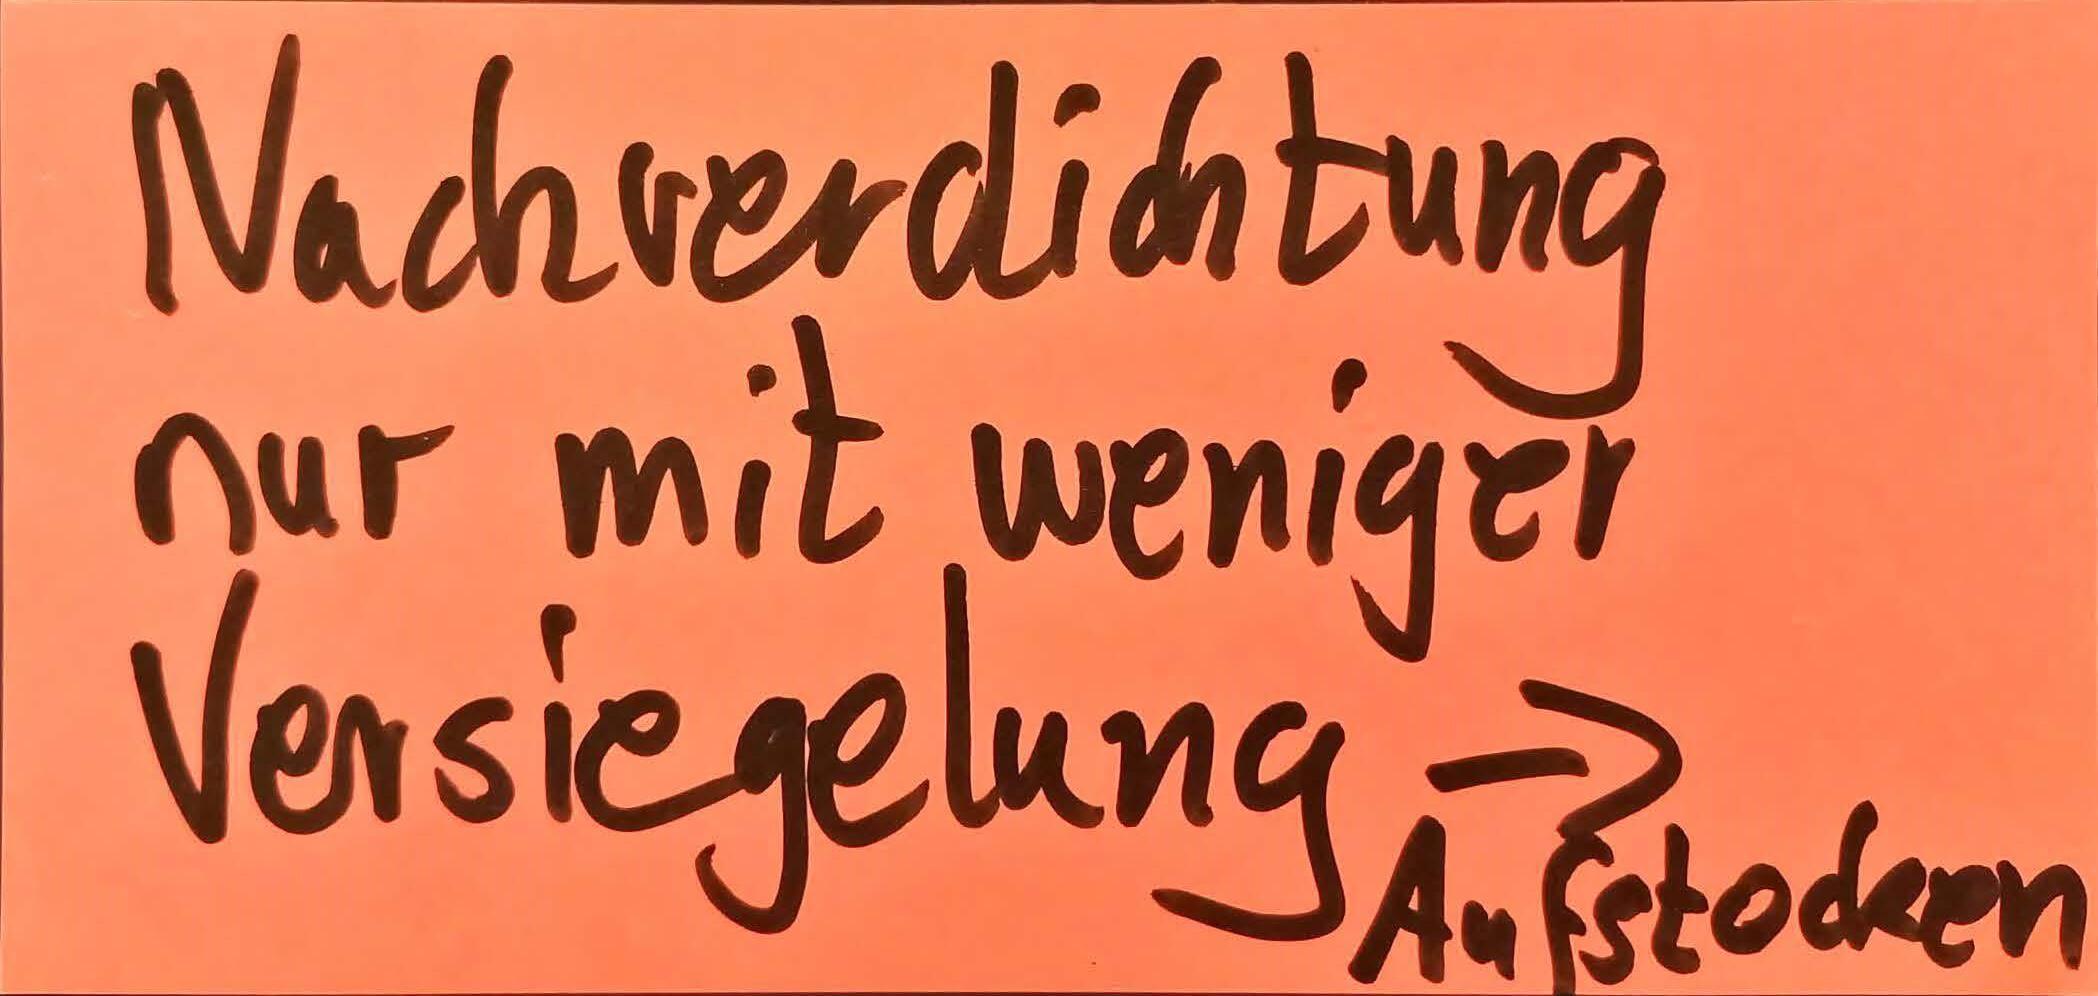 Nachverdichtung
nur mit weniger
Versiegelung →
Aufstocken